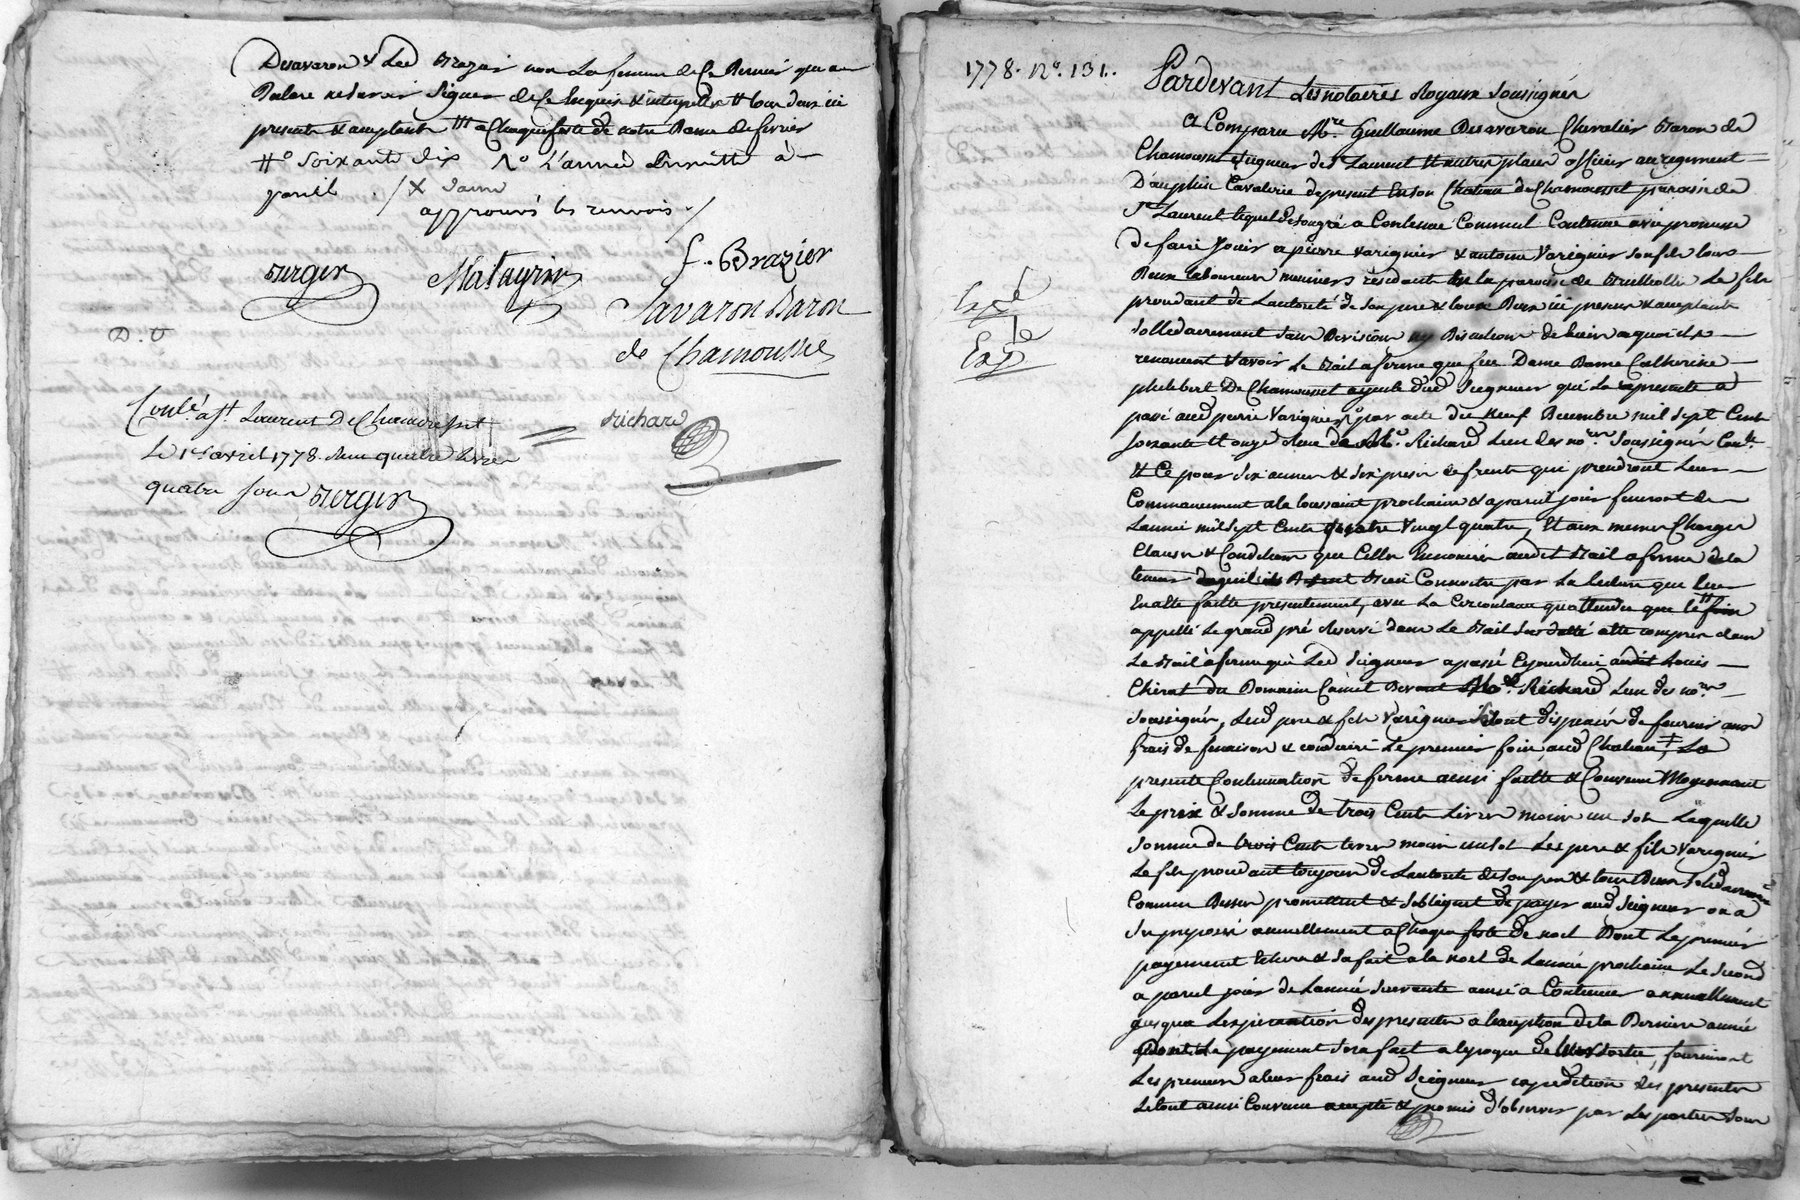 Desavaron & Led Brazier non la femme de ce dernier qui a
declaré ne savoir signer de ce enquis & interpellés # tous deux ici
presents & acceptants /// a chaque feste de notre Dame de fevrier
#o soixante dix 1o L'année ensuitte à
pareil ./ X dame
approuvés les renvois ./
f. Brazier
Berger Mathyrin
Savaron Baron
de Chamousset
D. V
Conlé à St Laurent De Chamousset
Le 1er avril 1778. Reçu quatre livres
quatre sous Berger
Richard
1778. No. 131.
Pardevant Les notaires Royaux Soussignés
a Comparu Mre Guillaume Desavaron Chevalier Baron de
Chamousset seigneur de St Laurent & autres places officier au regiment
Dauphin Cavalerie de present en son Chateau de Chamousset paroisse de
St Laurent lequel de son gré a continué comme il continue avec promesse
de faire jouir a pierre Varignier & antoine Varignier son fils tous
deux laboureurs resident en la paroisse de Brullolle Le fils
procedant de L'autorité de son pere & tous deux ici presents & acceptants
sollidairement sans division ny discution de bien a quoi ils
renoncent savoir Le Bail a ferme que feue Dame Dame Catherine
philibert De Chamousset ayeule dud. Seigneur qui La represente a
passé aud pierre Varignier par acte du neuf Decembre mil sept Cent
soixante & onze Reçu Me. Richard L'un des nores soussignés Conlé
& Ce pour six années & six prises de fruits qui prendront Leur
Commancement a la toussaint prochaine & a pareil jour finiront de
L'année mil sept Cent quatre vingt quatre, Et aux memes Charges
Clauses & Conditions que Celles Enoncées audit Bail a ferme de la
teneur duquel ils Bien Connoitre par La lecture que leur
En a été faitte presentement, avec La Circonstance qu'attendu que le # foin
appellé Le grand pré Reservé dans Le Bail susdatté a été compris dans
Le Bail à ferme que Led Seigneur a passé Cejourdhui audit Louis
Chirat du Domaine Devant Me Richard L'un des nores
soussignés, Lesd pere & fils Varignier sont dispensés de fournir aux
frais de fenaison & conduire Le premier foin aud Chateau, ‡ La
presente Continuation de ferme ainsi faitte & Convenue Moyennant
Le prix & somme de trois Cents Livres moins un sol Laquelle
somme de trois Cents livres moins un sol Les pere & fils Varignier
Le fils procedant toujours de L'autorité de son pere & tous Deux Solidairement
Comme Dessus promettent & s'obligent de payer aud Seigneur ou a
Son preposé annuellement a Chaque feste de noel Dont Le premier
payement Echera & sa fait a la noel de L'année prochaine Le Second
a pareil jour de L'année suivante ainsi a Continuer annuellement
jusqua L'expiration des presentes a l'exception de la Derniere année
dont Le payement sera fait a l'epoque de leur sortie, fourniront
Les preneurs a leurs frais aud Seigneur expedition des presentes
Le tout ainsi Convenu accepté & promis d'observer par Les parties sous
Expé
Expé